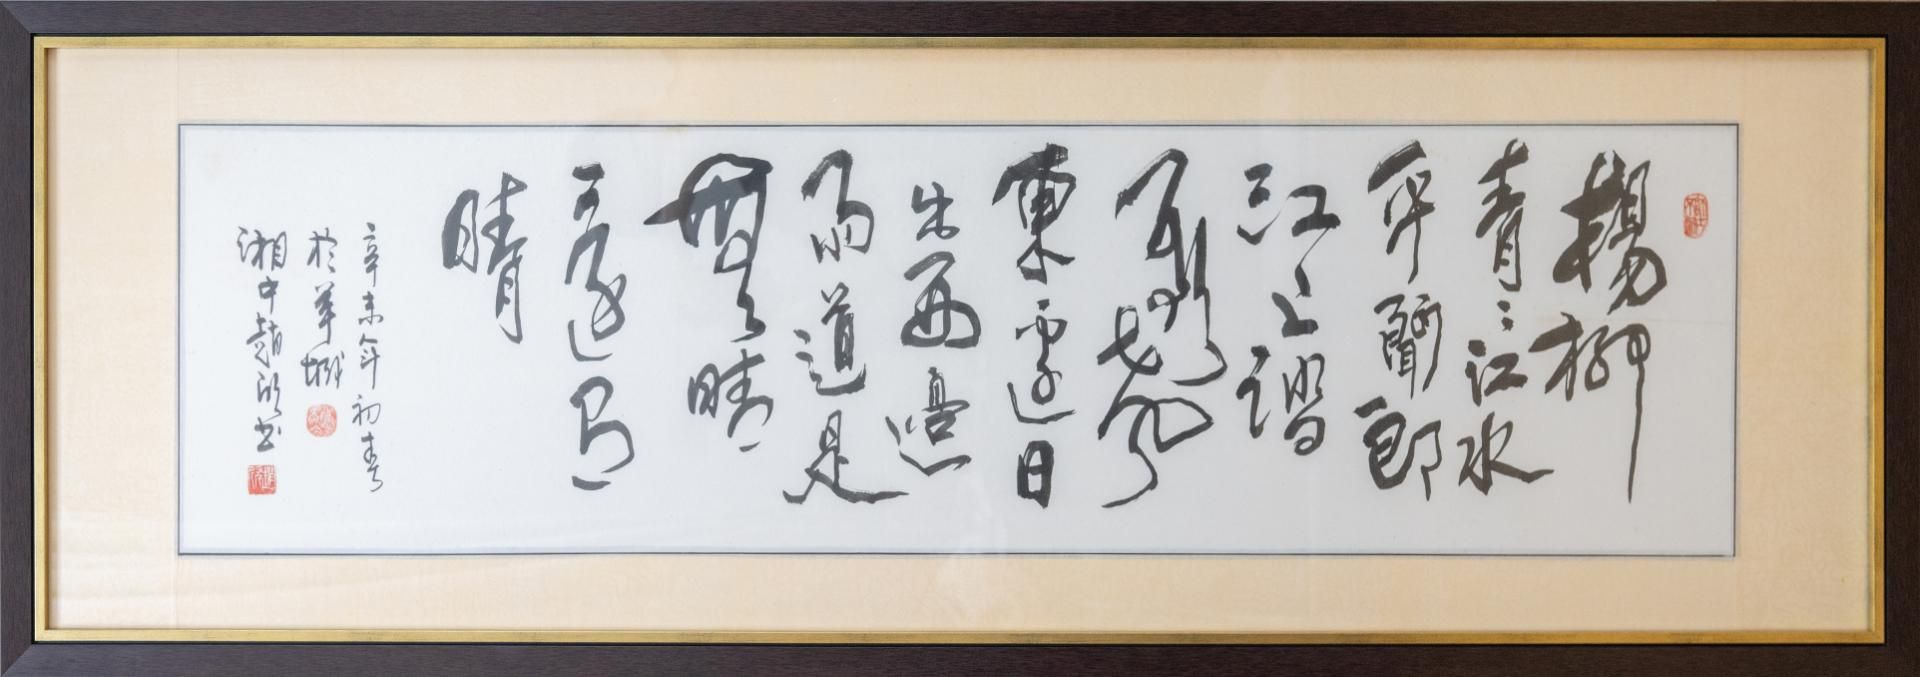 楊柳
青〻江水
平聞郎
江上踏
歌聲
東邊日
出西邊
雨道是
無晴
還有
晴
辛未年初春
於羊城
湘中趙 書